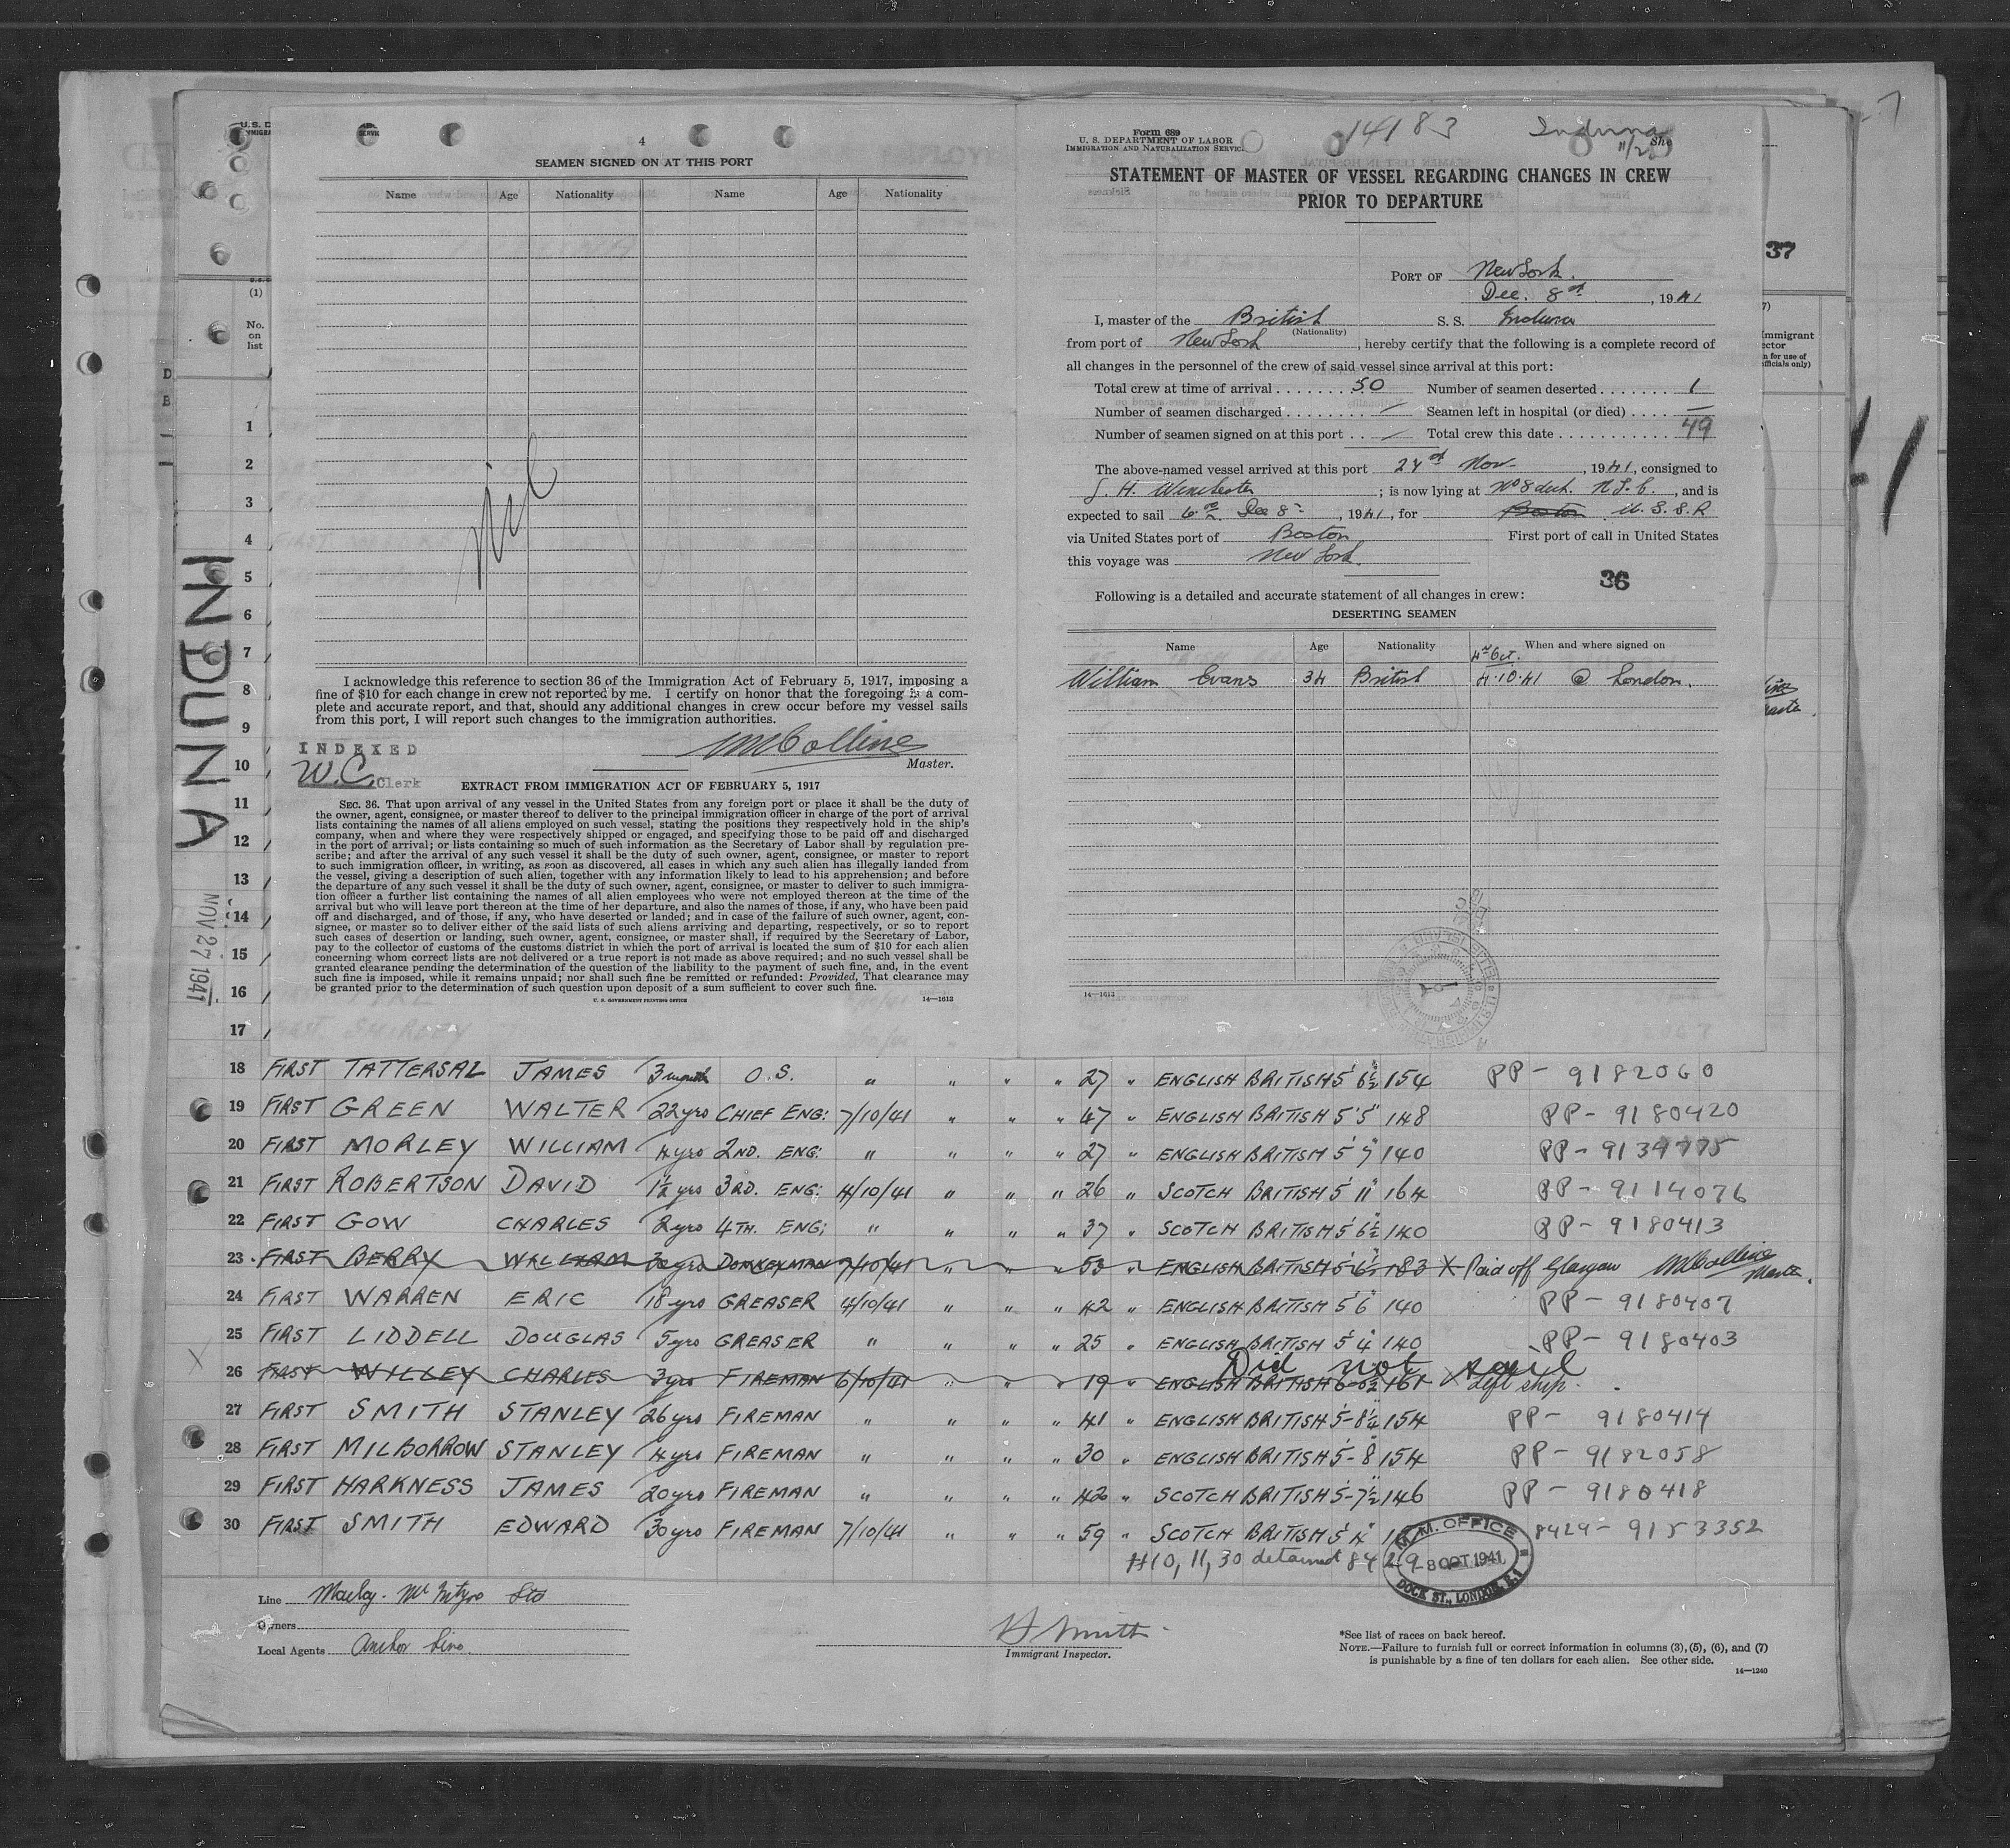 4
SEAMEN SIGNED ON AT THIS PORT
Name Age Nationality Name Age Nationality
Nil
I acknowledge this reference to section 36 of the Immigration Act of February 5, 1917, imposing a
fine of $10 for each change in crew not reported by me. I certify on honor that the foregoing is a com-
plete and accurate report, and that, should any additional changes in crew occur before my vessel sails
from this port, I will report such changes to the immigration authorities.
INDEXED
W.C. Clerk
Master.
EXTRACT FROM IMMIGRATION ACT OF FEBRUARY 5, 1917
SEC. 36. That upon arrival of any vessel in the United States from any foreign port or place it shall be the duty of
the owner, agent, consignee, or master thereof to deliver to the principal immigration officer in charge of the port of arrival
lists containing the names of all aliens employed on such vessel, stating the positions they respectively hold in the ship's
company, when and where they were respectively shipped or engaged, and specifying those to be paid off and discharged
in the port of arrival; or lists containing so much of such information as the Secretary of Labor shall by regulation pre-
scribe; and after the arrival of any such vessel it shall be the duty of such owner, agent, consignee, or master to report
to such immigration officer, in writing, as soon as discovered, all cases in which any such alien has illegally landed from
the vessel, giving a description of such alien, together with any information likely to lead to his apprehension; and before
the departure of any such vessel it shall be the duty of such owner, agent, consignee, or master to deliver to such immigra-
tion officer a further list containing the names of all alien employees who were not employed thereon at the time of the
arrival but who will leave port thereon at the time of her departure, and also the names of those, if any, who have been paid
off and discharged, and of those, if any, who have deserted or landed; and in case of the failure of such owner, agent, con-
signee, or master so to deliver either of the said lists of such aliens arriving and departing, respectively, or so to report
such cases of desertion or landing, such owner, agent, consignee, or master shall, if required by the Secretary of Labor,
pay to the collector of customs of the customs district in which the port of arrival is located the sum of $10 for each alien
concerning whom correct lists are not delivered or a true report is not made as above required; and no such vessel shall be
granted clearance pending the determination of the question of the liability to the payment of such fine, and, in the event
such fine is imposed, while it remains unpaid; nor shall such fine be remitted or refunded: Provided, That clearance may
be granted prior to the determination of such question upon deposit of a sum sufficient to cover such fine.
U. S. GOVERNMENT PRINTING OFFICE 14—1613
Form 689
U. S. DEPARTMENT OF LABOR
IMMIGRATION AND NATURALIZATION SERVIC
14183 Induna
She
STATEMENT OF MASTER OF VESSEL REGARDING CHANGES IN CREW
PRIOR TO DEPARTURE
PORT OF New York.
Dec. 8th, 1941
I, master of the British S. S. Induna
(Nationality)
from port of New York, hereby certify that the following is a complete record of
all changes in the personnel of the crew of said vessel since arrival at this port:
Total crew at time of arrival 50 Number of seamen deserted 1
Number of seamen discharged — Seamen left in hospital (or died) —
Number of seamen signed on at this port — Total crew this date 49
The above-named vessel arrived at this port Nov. , 1941, consigned to
H. Winchester ; is now lying at No 8 dock. N.J.C. , and is
expected to sail Dec 8 , 1941, for Boston U.S.S.R
via United States port of Boston First port of call in United States
this voyage was New York.
36
Following is a detailed and accurate statement of all changes in crew:
DESERTING SEAMEN
Name Age Nationality When and where signed on
4th Oct.
William Evans 34 British 4.10.41 @ London.
14—1613
37
(1)
No.
on
list
1
2
3
4
5
6
7
8
9
10
11
12
13
14
15
16
17
INDUNA
NOV 27 1941
18 FIRST TATTERSAL JAMES 3 month O.S. " " " " 27 " ENGLISH BRITISH 5' 6½" 154 PP - 9182060
19 FIRST GREEN WALTER 22yrs CHIEF ENG: 7/10/41 " " " 47 " ENGLISH BRITISH 5' 5" 148 PP - 9180420
20 FIRST MORLEY WILLIAM 4yrs 2ND. ENG: " " " " 27 " ENGLISH BRITISH 5' 9" 140 PP -
21 FIRST ROBERTSON DAVID 1½yrs 3RD. ENG: 4/10/41 " " " 26 " SCOTCH BRITISH 5' 11" 164 PP - 9114076
22 FIRST GOW CHARLES 2yrs 4TH. ENG; " " " " 37 " SCOTCH BRITISH 5' 6½" 140 PP - 9180413
23 FIRST BERRY WILLIAM 30yrs DONKEYMAN 7/10/41 " " " 53 " ENGLISH BRITISH 5' 6½" 183 X Paid off Glasgow Master.
24 FIRST WARREN ERIC 18yrs GREASER 4/10/41 " " " 42 " ENGLISH BRITISH 5' 6" 140 PP - 9180407
25 FIRST LIDDELL DOUGLAS 5yrs GREASER " " " " 25 " ENGLISH BRITISH 5' 4" 140 PP - 9180403
Did not sail
X 26 FIRST WILLEY CHARLES 3yrs FIREMAN 6/10/41 " " " 19 " ENGLISH BRITISH 6-0½ 161 X Left ship.
27 FIRST SMITH STANLEY 26yrs FIREMAN " " " " 41 " ENGLISH BRITISH 5'-8½" 154 PP - 9180414
28 FIRST MILBORROW STANLEY 4yrs FIREMAN " " " " 30 " ENGLISH BRITISH 5'-8" 154 PP - 9182058
29 FIRST HARKNESS JAMES 20yrs FIREMAN " " " " 42 " SCOTCH BRITISH 5'-7½" 146 PP - 9180418
30 FIRST SMITH EDWARD 30yrs FIREMAN 7/10/41 " " " 59 " SCOTCH BRITISH 5' 4" 8429 - 9153352
#10, 11, 30 detained 8429
M.M. OFFICE
-8 OCT 1941
DOCK ST., LONDON, E.1
Line Maclay. McIntyre Ltd
Owners
Local Agents Anchor Line.
H Smith
Immigrant Inspector.
*See list of races on back hereof.
NOTE.—Failure to furnish full or correct information in columns (3), (5), (6), and (7)
is punishable by a fine of ten dollars for each alien. See other side.
14—1240